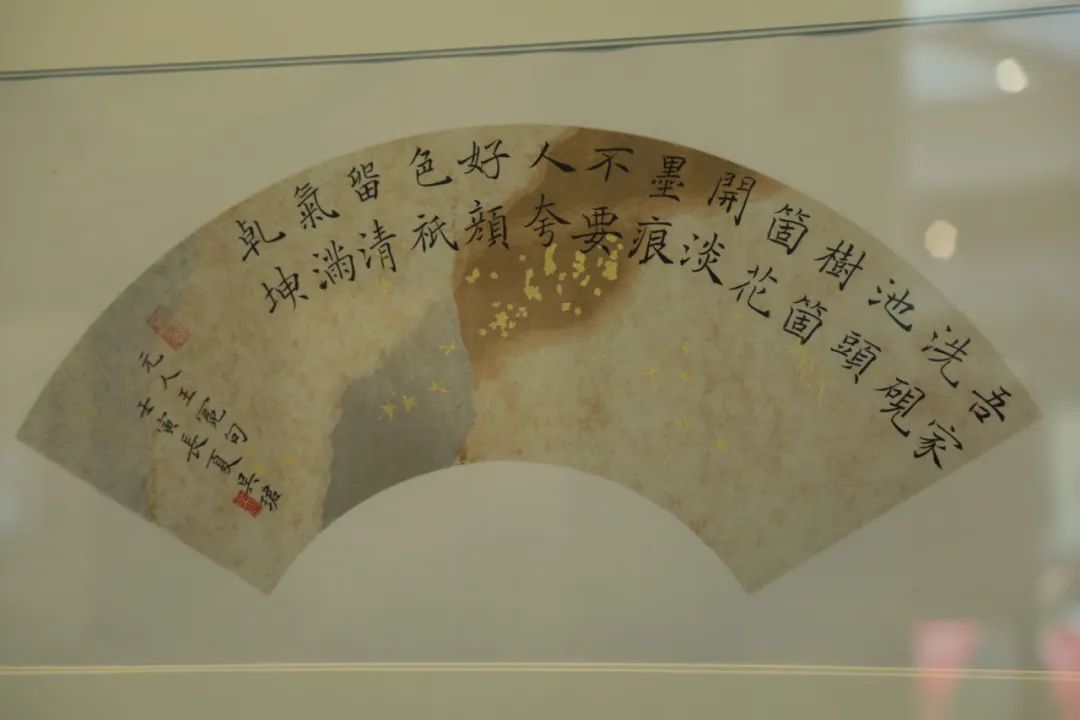 吾家
洗硯
池頭
樹箇
箇花
開淡
墨痕
不要
人夸
好顔
色祇
留清
氣滿
乹坤
元人王冕句
壬寅長夏吳珺